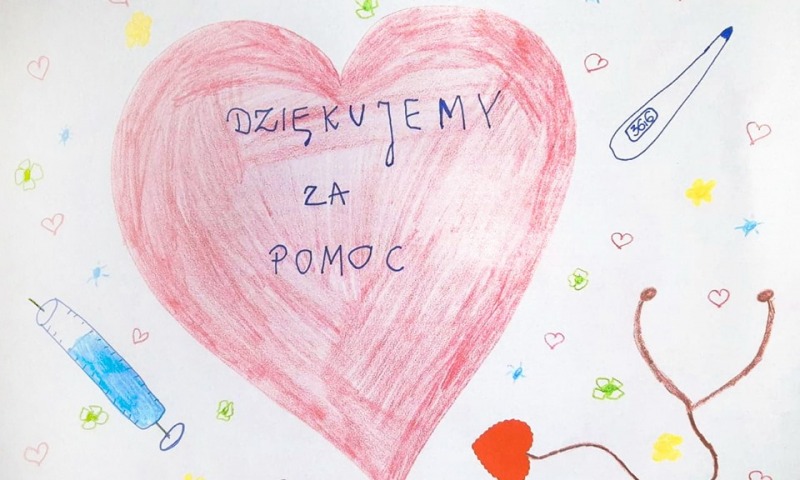 DZIĘKUJEMY
ZA
POMOC
36,6